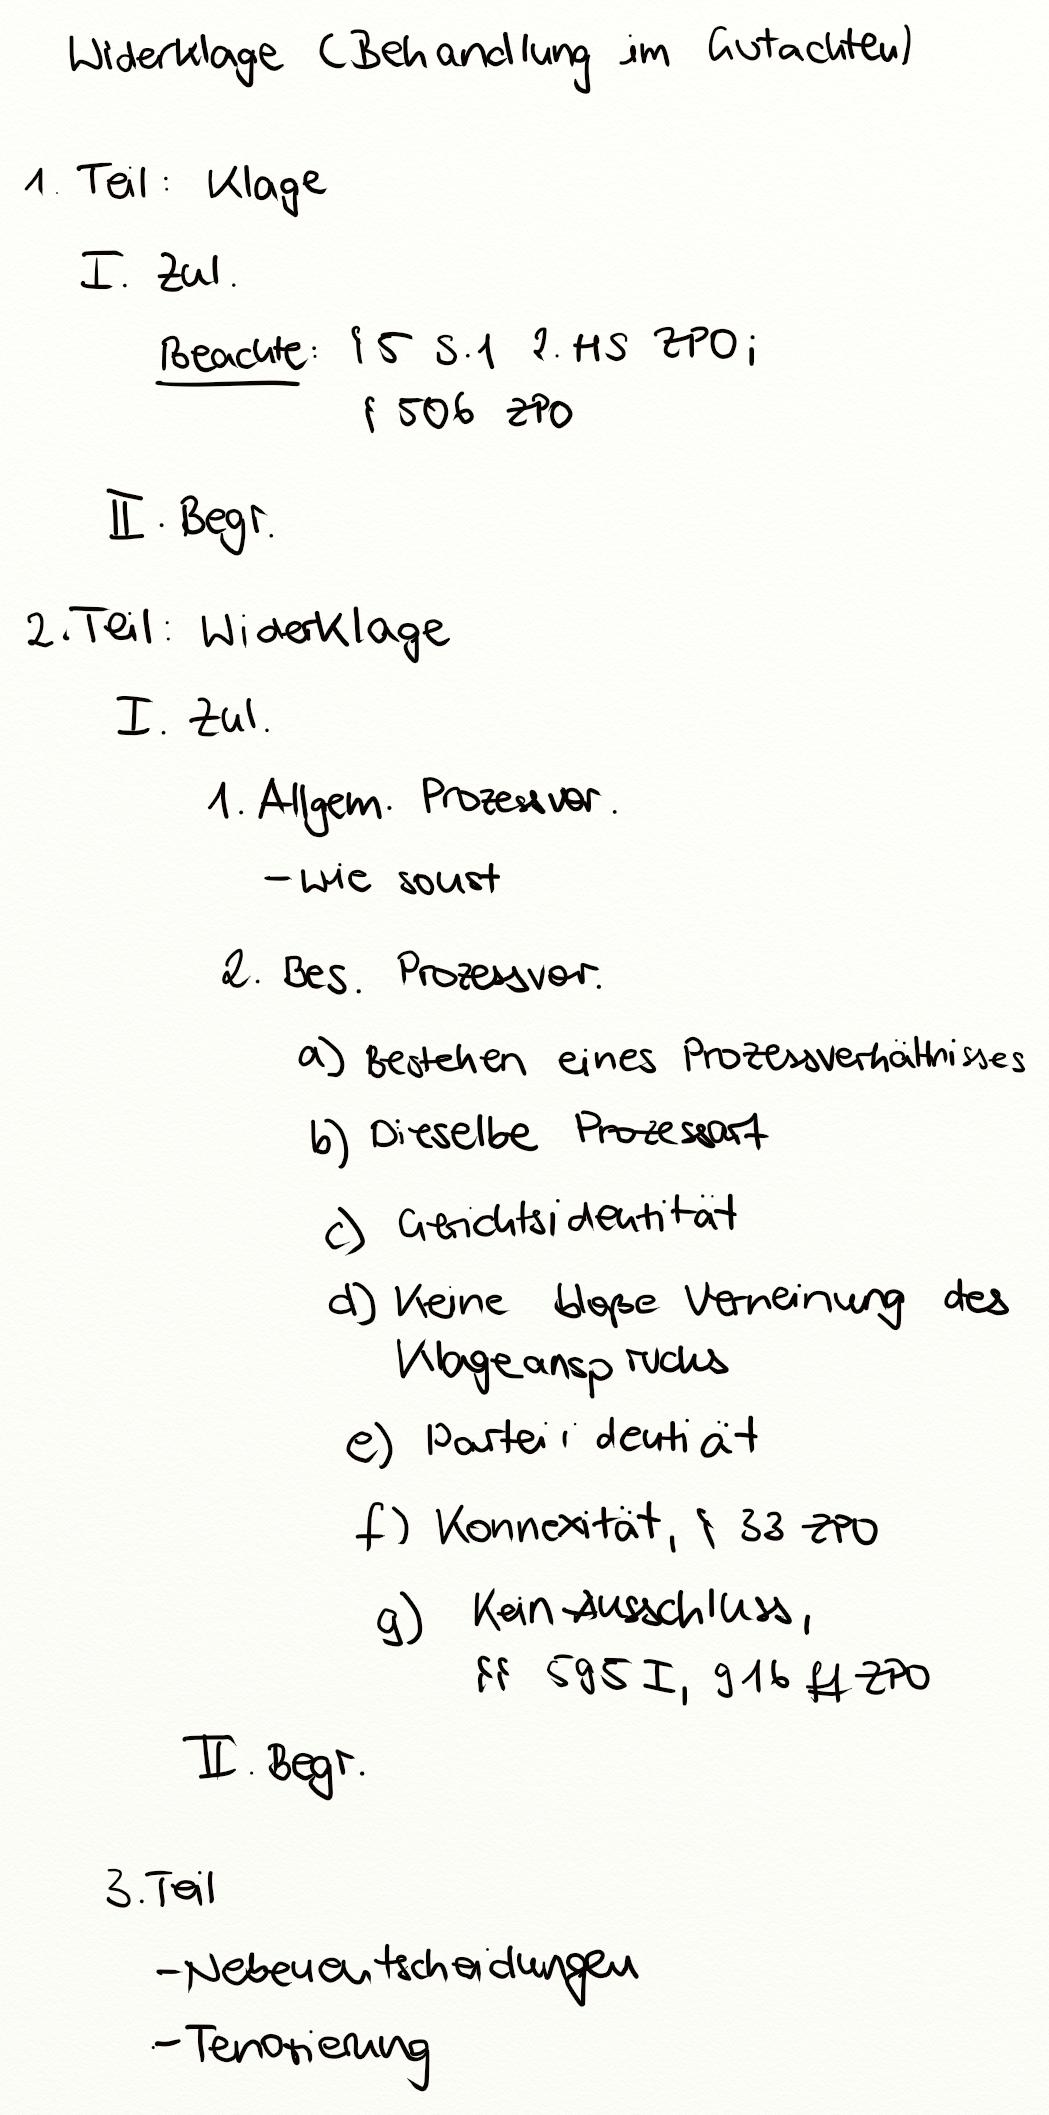 Widerklage (Behandlung im Gutachten)
1. Teil: Klage
I. Zul.
Beachte: § 5 S.1 2. HS ZPO;
§ 506 ZPO
II. Begr.
2. Teil: Widerklage
I. Zul.
1. Allgem. Prozessvor.
- wie sonst
2. Bes. Prozessvor.
a) Bestehen eines Prozessverhältnisses
b) Dieselbe Prozessart
c) Gerichtsidentität
d) Keine bloße Verneinung des
Klageanspruchs
e) Parteiidentiät
f) Konnexität, § 33 ZPO
g) Kein Ausschluss,
§§ 595 I, 916 ff ZPO
II. Begr.
3. Teil
- Nebenentscheidungen
- Tenorierung